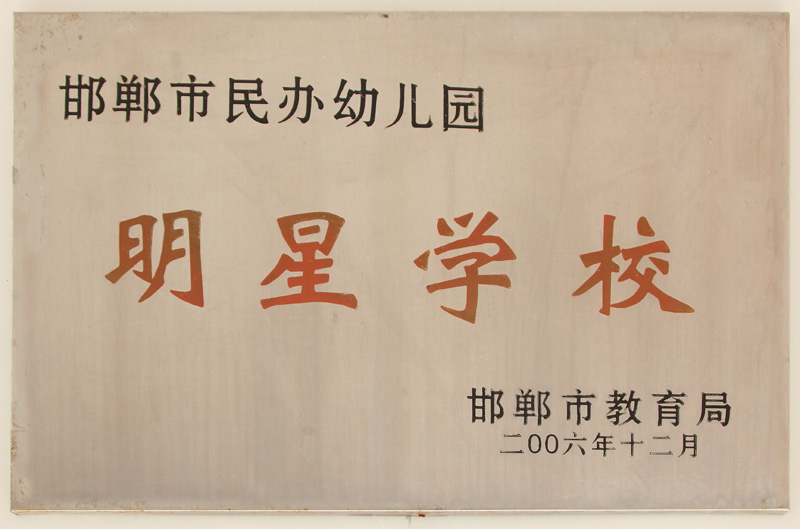 邯郸市民办幼儿园
明星学校
邯郸市教育局
二00六年十二月